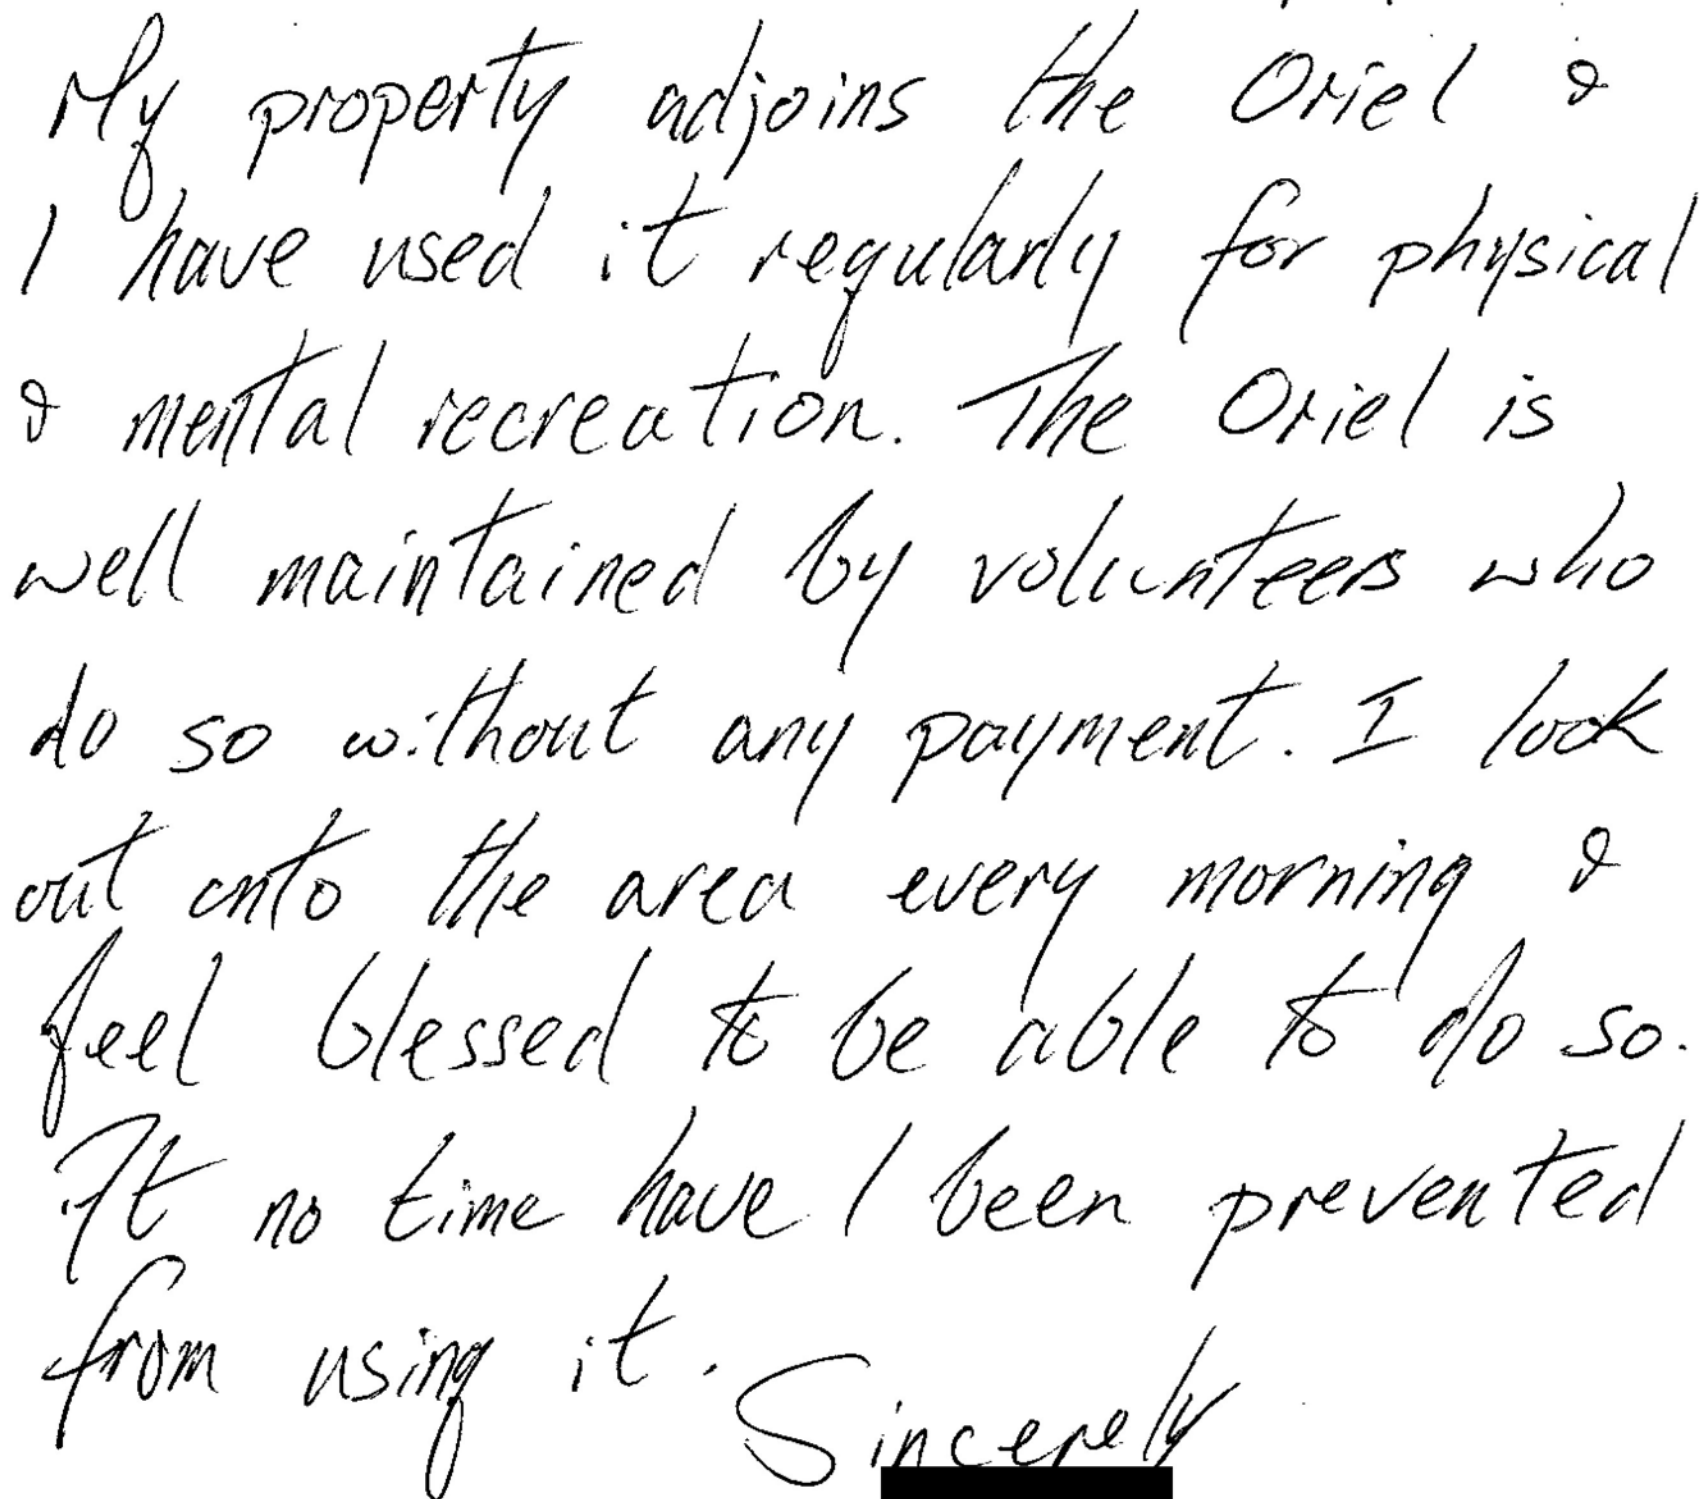 My property adjoins the Oriel &
I have used it regularly for physical
& mental recreation. The Oriel is
well maintained by volunteers who
do so without any payment. I look
out onto the area every morning &
feel blessed to be able to do so.
At no time have I been prevented
from using it.
Sincerely